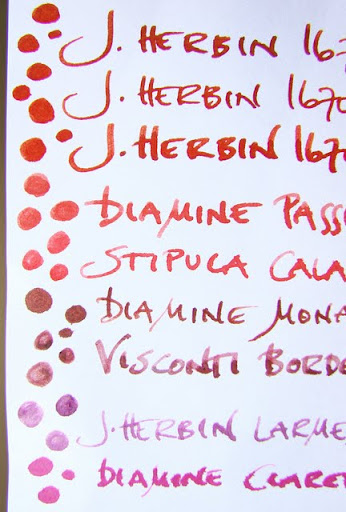 J. HERBIN 167
J. HERBIN 1670
J. HERBIN 1670
DIAMINE PASS
STIPULA CALA
DIAMINE MONA
VISCONTI BORDE
J. HERBIN LARME
DIAMINE CLARET